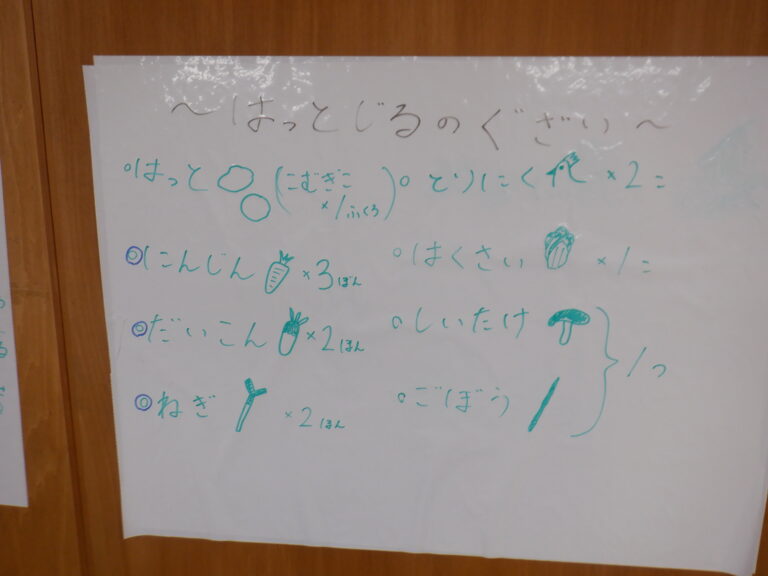 ～はっとじるのぐざい～
○はっと (こむぎこ ×1ふくろ)
○とりにく ×2こ
◎にんじん ×3ぼん
○はくさい ×1こ
◎だいこん ×2ほん
○しいたけ
◎ねぎ ×2ほん
○ごぼう
1つ